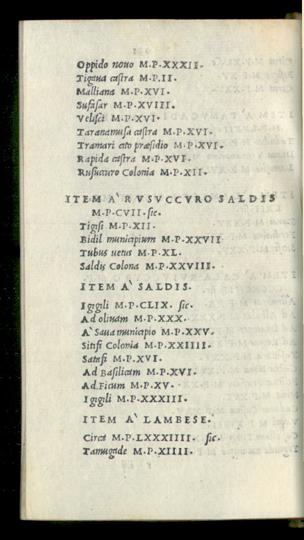 Oppido nouo M.P.XXXII.
Tigaua castra M.P.II.
Malliana M.P.XVI.
Sufasar M.P.XVIII.
Velisci M.P.XVI.
Taranamusa castra M.P.XVI.
Tramari cito præsidio M.P.XVI.
Rapida castra M.P.XVI.
Rusuccuro Colonia M.P.XII.
ITEM A' RVSVCCVRO SALDIS
M.P.CVII. sic.
Tigisi M.P.XII.
Bidil municipium M.P.XXVII
Tubus uetus M.P.XL.
Saldis Colona M.P.XXVIII.
ITEM A' SALDIS.
Igigili M.P.CLIX. sic.
Ad oliuam M.P.XXX.
A' Saua municipio M.P.XXV.
Sitifi Colonia M.P.XXIIII.
Satafi M.P.XVI.
Ad Basilicam M.P.XVI.
Ad Ficum M.P.XV.
Igigili M.P.XXXIII.
ITEM A' LAMBESE.
Circa M.P.LXXXIIII. sic.
Tamugade M.P.XIIII.